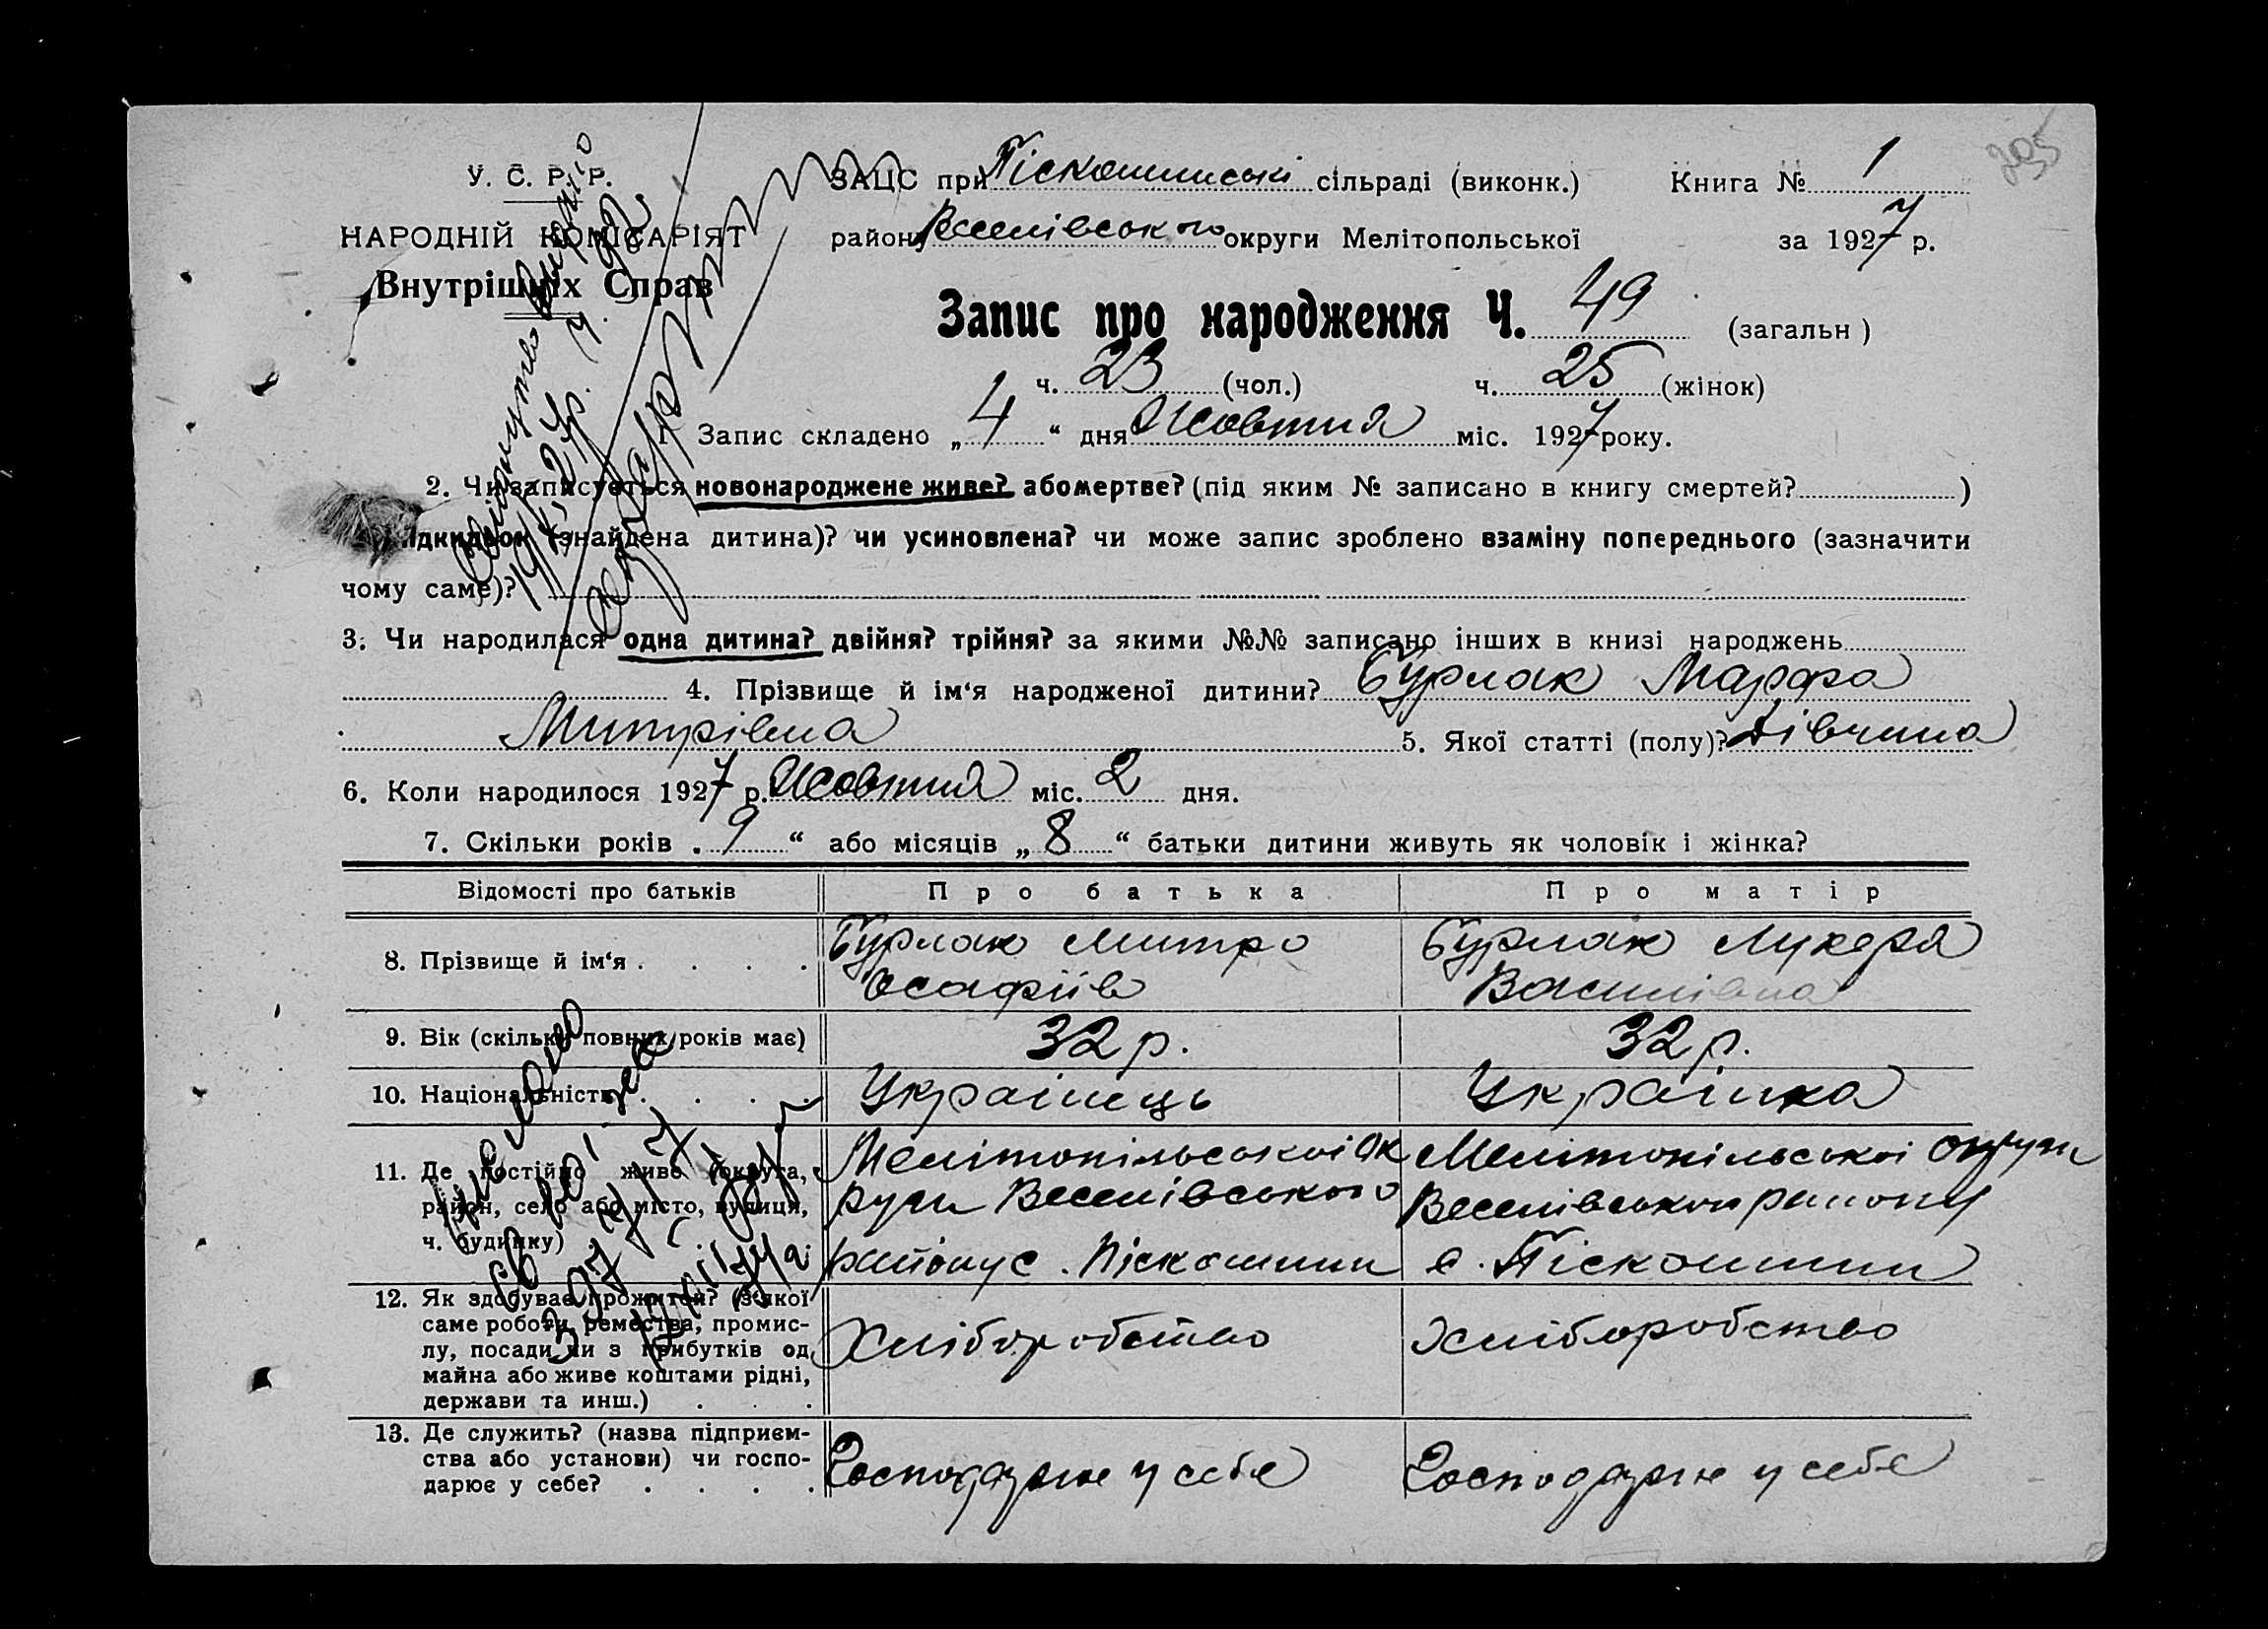 295
У. С. Р. Р.
НАРОДНІЙ КОМІСАРІЯТ
Внутрішніх Справ
ЗАЦС при Піскошинські сільраді (виконк.) Книга № 1
району Веселівського округи Мелітопольської за 1927 р.
Запис про народження Ч. 49 (загальн)
ч. 23 (чол.) ч. 25 (жінок)
1. Запис складено „4“ дня Жовтня міс. 1927 року.
2. Чи записується новонароджене живе? або мертве? (під яким № записано в книгу смертей? )
підкидьок (знайдена дитина)? чи усиновлена? чи може запис зроблено взаміну попереднього (зазначити
чому саме)?
3. Чи народилася одна дитина? двійня? трійня? за якими №№ записано інших в книзі народжень
4. Прізвище й ім‘я народженої дитини? Бурлак Марфа
Митрівна 5. Якої статті (полу)? Дівчина
6. Коли народилося 1927 р. Жовтня міс. 2 дня.
7. Скільки років „9“ або місяців „8“ батьки дитини живуть як чоловік і жінка?
Відомості про батьків Про батька Про матір
8. Прізвище й ім‘я . . . . Бурлак Митро Бурлак Лукеря
Осафіів Василівна
9. Вік (скільки повних років має) 32 р. 32 р.
10. Національність . . . . Украінець Украінка
11. Де постійно живе (округа, Мелітопільськоі Ок Мелітопільськоі округи
район, село або місто, вулиця, руги Веселівського Веселівського району
ч. будинку) району с. Піскошини с. Піскошини
12. Як здобуває прожиток? (з якої
саме роботи, ремества, промис- Хліборобство Хліборобство
лу, посади чи з прибутків од
майна або живе коштами рідні,
держави та инш.) . . .
13. Де служить? (назва підприєм-
ства або установи) чи госпо- Господарює у себе Господарює у себе
дарює у себе? . . . .